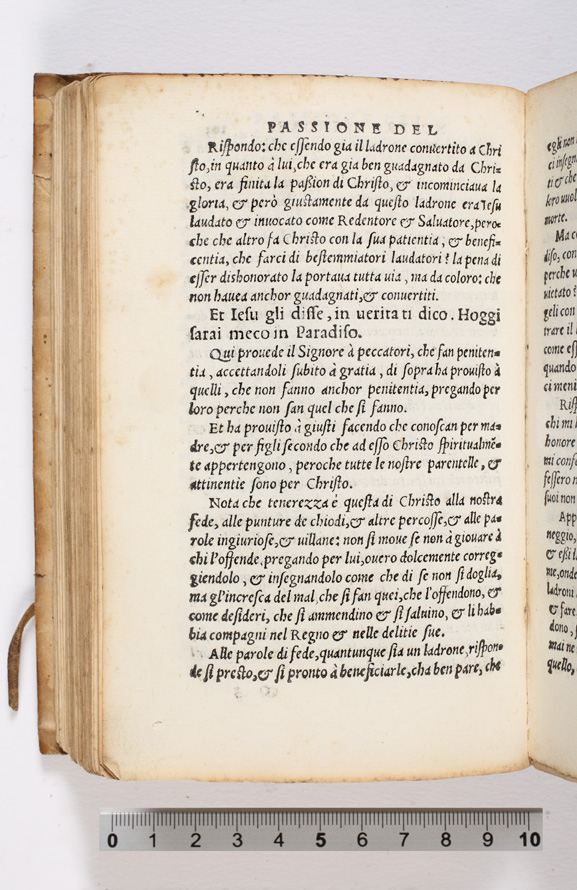 PASSIONE DEL
Rispondo: che essendo gia il ladrone conuertito a Chri
sto, in quanto á lui, che era gia ben guadagnato da Chri-
sto, era finita la passion di Christo, & incominciaua la
gloria, & però giustamente da questo ladrone era Iesu
laudato & inuocato come Redentore & Saluatore, pero-
che che altro fa Christo con la sua patientia, & benefi-
centia, che farci di bestemmiatori laudatori? la pena di
esser dishonorato la portaua tutta uia, ma da coloro: che
non hauea anchor guadagnati, & conuertiti.
Et Iesu gli disse, in uerita ti dico. Hoggi
sarai meco in Paradiso.
Qui prouede il Signore à peccatori, che fan peniten-
tia, accettandoli subito à gratia, di sopra ha prouisto à
quelli, che non fanno anchor penitentia, pregando per
loro perche non san quel che si fanno.
Et ha prouisto à giusti facendo che conoscan per ma-
dre, & per figli secondo che ad esso Christo spiritualmẽ-
te appertengono, peroche tutte le nostre parentelle, &
attinentie sono per Christo.
Nota che tenerezza é questa di Christo alla nostra
fede, alle punture de chiodi, & altre percosse, & alle pa-
role ingiuriose, & uillane: non si moue se non à giouare à
chi l'offende, pregando per lui, ouero dolcemente correg-
giendolo, & insegnandolo come che di se non si doglia,
ma gl'incresca del mal, che si fan quei, che l'offendono, &
come desideri, che si ammendino & si saluino, & li hab-
bia compagni nel Regno & nelle delitie sue.
Alle parole di fede, quantunque sia un ladrone, rispon-
de si presto, & si pronto à beneficiarle, cha ben pare, che
egli non
ci insegn
ti & che
morte.
Ma co
diso, con
perche u
uietato?
geli con
trare il
come ess
quando
ci meni
Risp
chi mi
honore
mi conf
fessero n
suoi non
App
neggio,
& essi
me, onde
ladroni
& fare
dono, s
mai ne
quello,
0 1 2 3 4 5 6 7 8 9 10